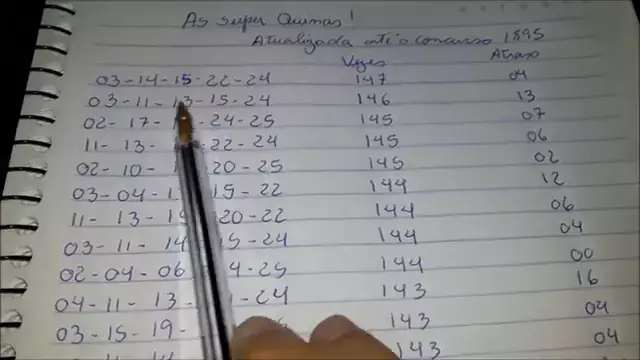 As super Quinas!
Atualizada até o concurso 1895
Vezes Atraso
03-14-15-22-24 147 04
03-11-13-15-24 146 13
02-17- -24-25 145 07
11-13- -22-24 145 06
02-10- -20-25 145 02
03-04- -15-22 144 12
11-13- -20-22 144 06
03-11- -24 144 04
02-04-06 -25 144 00
04-11-13- -24 143 16
03-15-19- 143 04
143 04